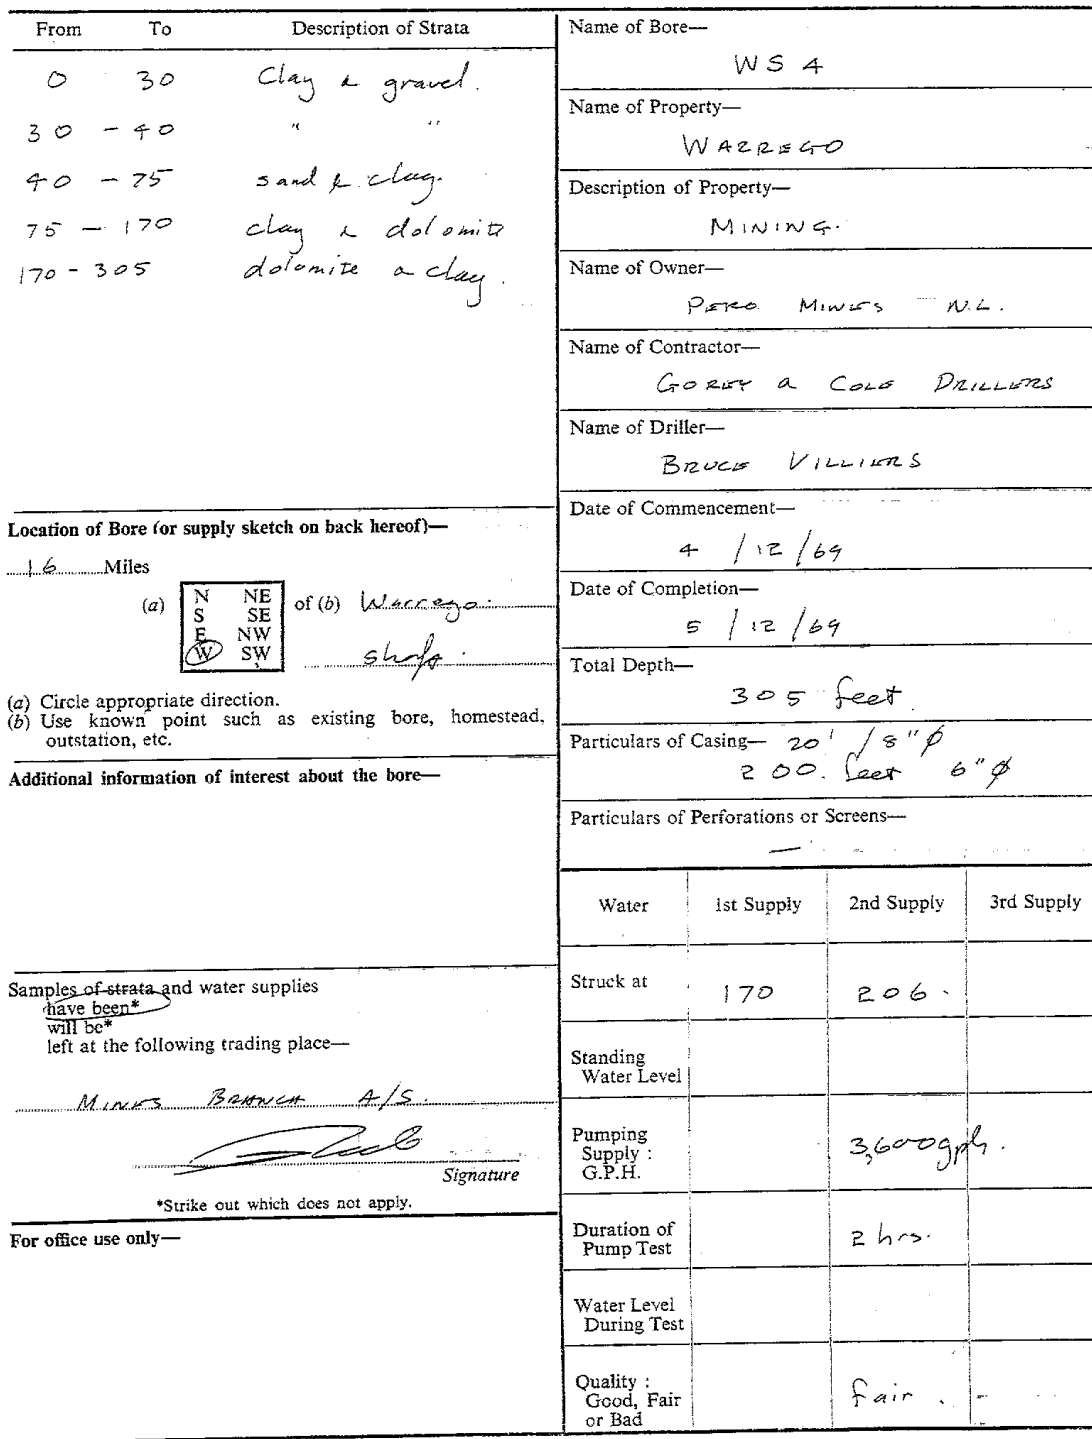 From To Description of Strata
0 30 Clay & gravel.
30 - 40 " "
40 - 75 sand & clay.
75 - 170 clay & dolomite
170 - 305 dolomite & clay.
Location of Bore (or supply sketch on back hereof)—
16 Miles
(a) N NE of (b) Warrego
S SE
E NW
W SW shaft.
(a) Circle appropriate direction.
(b) Use known point such as existing bore, homestead,
outstation, etc.
Additional information of interest about the bore—
Samples of strata and water supplies
have been*
will be*
left at the following trading place—
MINES BRANCH A/S.
Signature
*Strike out which does not apply.
For office use only—
Name of Bore—
WS 4
Name of Property—
WARREGO
Description of Property—
MINING.
Name of Owner—
PEKO MINES N.L.
Name of Contractor—
GOREY & COLE DRILLERS
Name of Driller—
BRUCE VILLIERS
Date of Commencement—
4 / 12 / 69
Date of Completion—
5 / 12 / 69
Total Depth—
305 feet.
Particulars of Casing— 20' / 8" φ
200. feet 6" φ
Particulars of Perforations or Screens—
—
Water 1st Supply 2nd Supply 3rd Supply
Struck at 170 206.
Standing
Water Level
Pumping
Supply : 3,600 gph.
G.P.H.
Duration of 2 hrs.
Pump Test
Water Level
During Test
Quality :
Good, Fair fair. -
or Bad